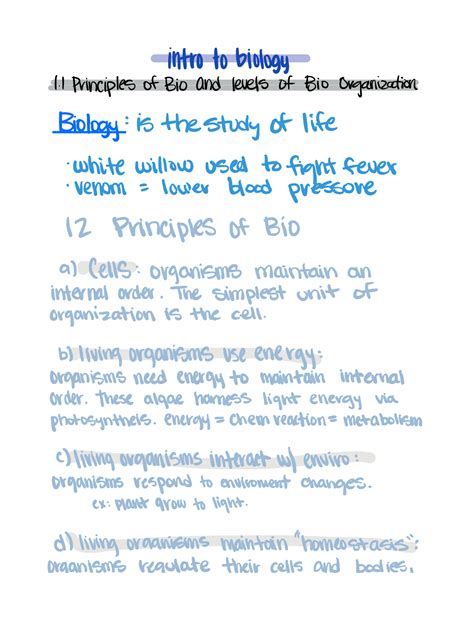 intro to biology
1.1 Principles of Bio and levels of Bio Organization
Biology: is the study of life
· white willow used to fight fever
· venom = lower blood pressure
1.2 Principles of Bio
a) Cells: organisms maintain an
internal order. The simplest unit of
organization is the cell.
b) living organisms use energy:
organisms need energy to maintain internal
order. These algae harness light energy via
photosyntheis. energy = chem reaction = metabolism
c) living organisms interact w/ enviro:
organisms respond to enviroment changes.
ex: plant grow to light.
d) living organisms maintain "homeostasis":
organisms regulate their cells and bodies,